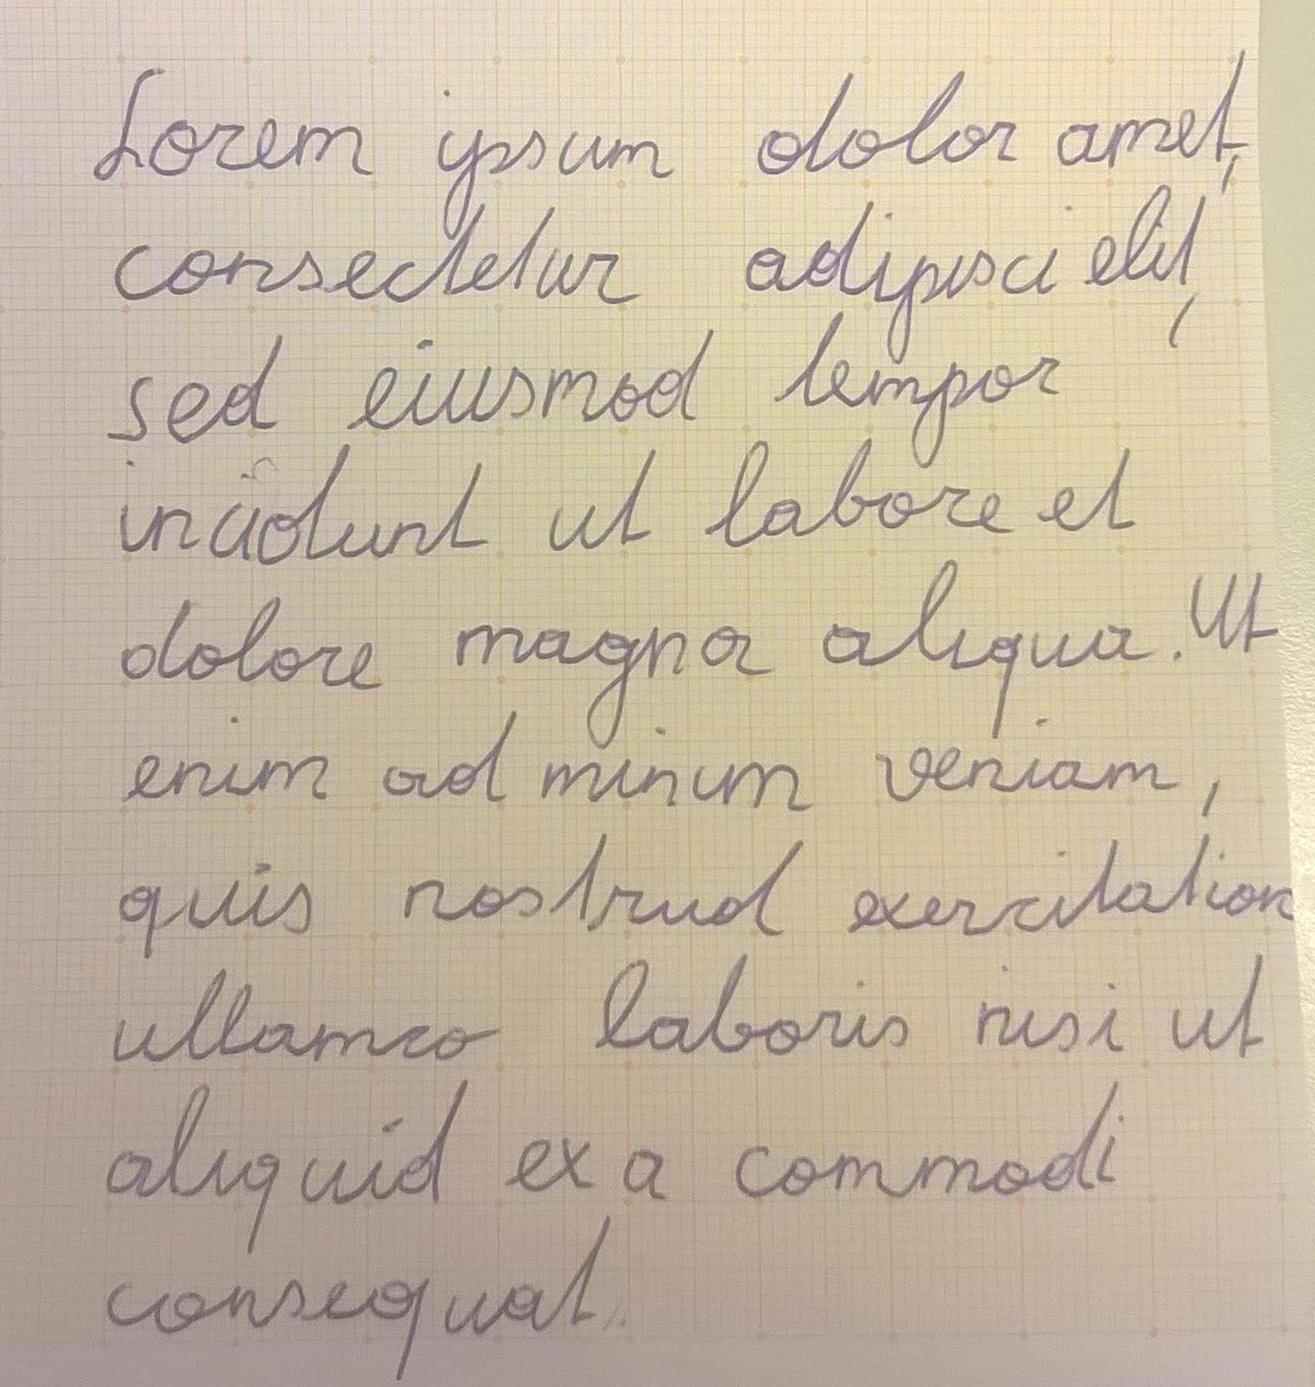 Lorem ipsum dolor amet,
consectetur adipisci elit,
sed eiusmod tempor
incidunt ut labore et
dolore magna aliqua. Ut
enim ad minim veniam,
quis nostrud exercitation
ullamco laboris nisi ut
aliquid ex a commodi
consequat.